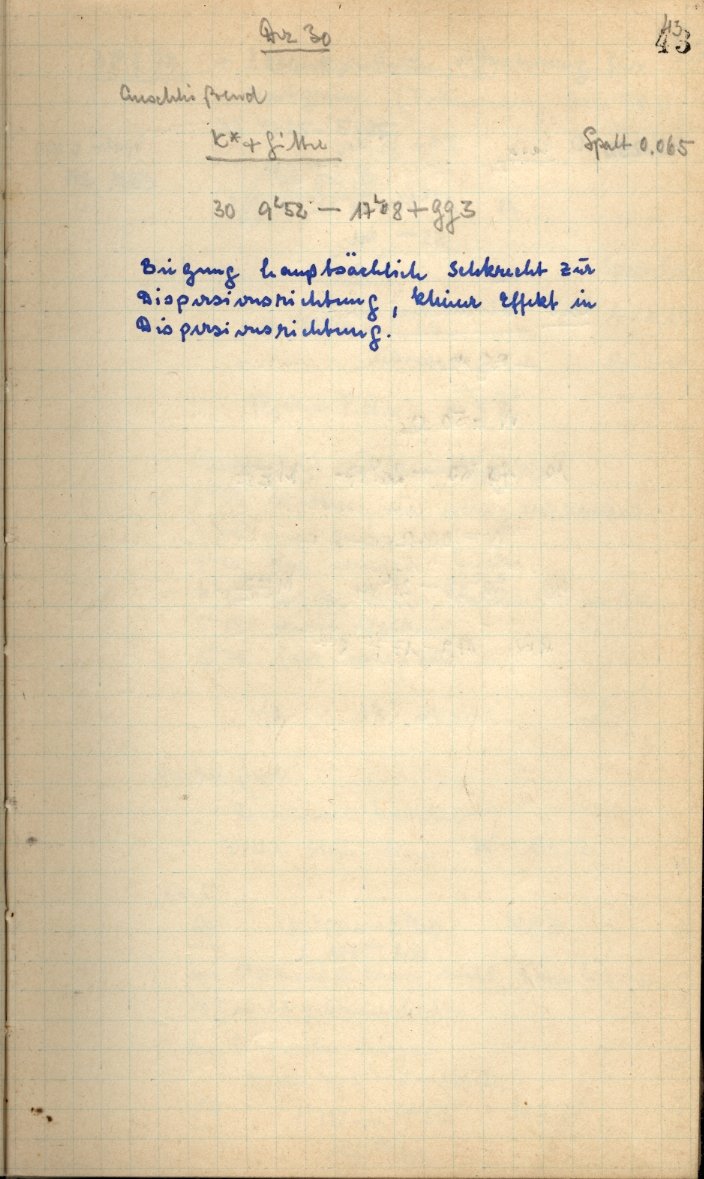 Dez 30
43
43
Anschließend
K*+Gitter
Spalt 0.065
30 9h52 — 17h08+gg3
Beugung hauptsächlich senkrecht zur
Dispersionsrichtung, kleiner Effekt in
Dispersionsrichtung.